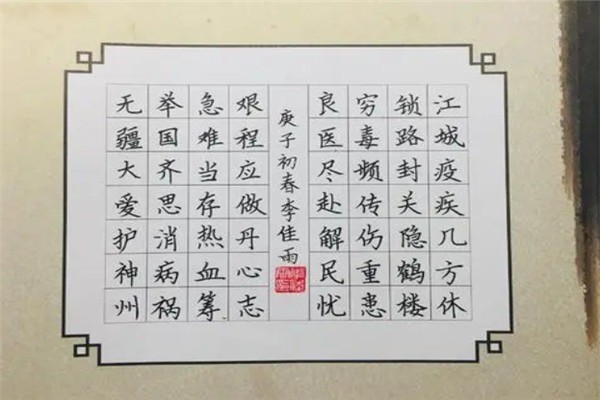 江城疫疾几方休
锁路封关隐鹤楼
穷毒频传伤重患
良医尽赴解民忧
庚子初春李佳雨
艰程应做丹心志
急难当存热血筹
举国齐思消病祸
无疆大爱护神州